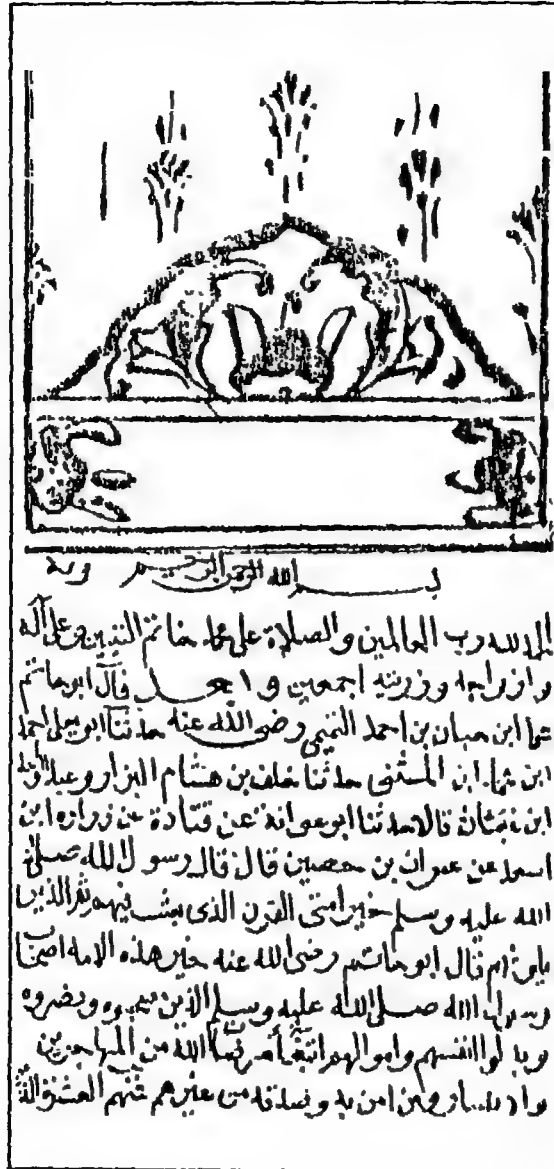 بسم الله الرحمن الرحيم وبه
الحمد لله رب العالمين والصلاة على محمد خاتم النبيين وعلى آله
وازواجه وذريته اجمعين و بعد قال ابو حاتم
محمد ابن حبان بن احمد التميمي رضى الله عنه حدثنا ابو يعلى احمد
ابن المثنى حدثنا خلف بن هشام البزار وعبد الواحد
ابن غياث قالا حدثنا ابو عوانة عن قتادة عن زرارة ابن
عن عمران بن حصين قال قال رسول الله صلى
الله عليه وسلم خير امتى القرن الذى بعثت فيهم ثم الذين
قال ابو حاتم رضى الله عنه خير هذه الامة اصحاب
رسول الله صلى الله عليه وسلم الذين صحبوه ونصروه
وبذلوا انفسهم واموالهم الله من المهاجرين
امن به وصدقه من غيرهم